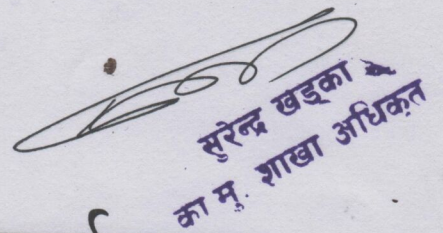 सुरेन्द्र खड्का
का मु. शाखा अधिकृत